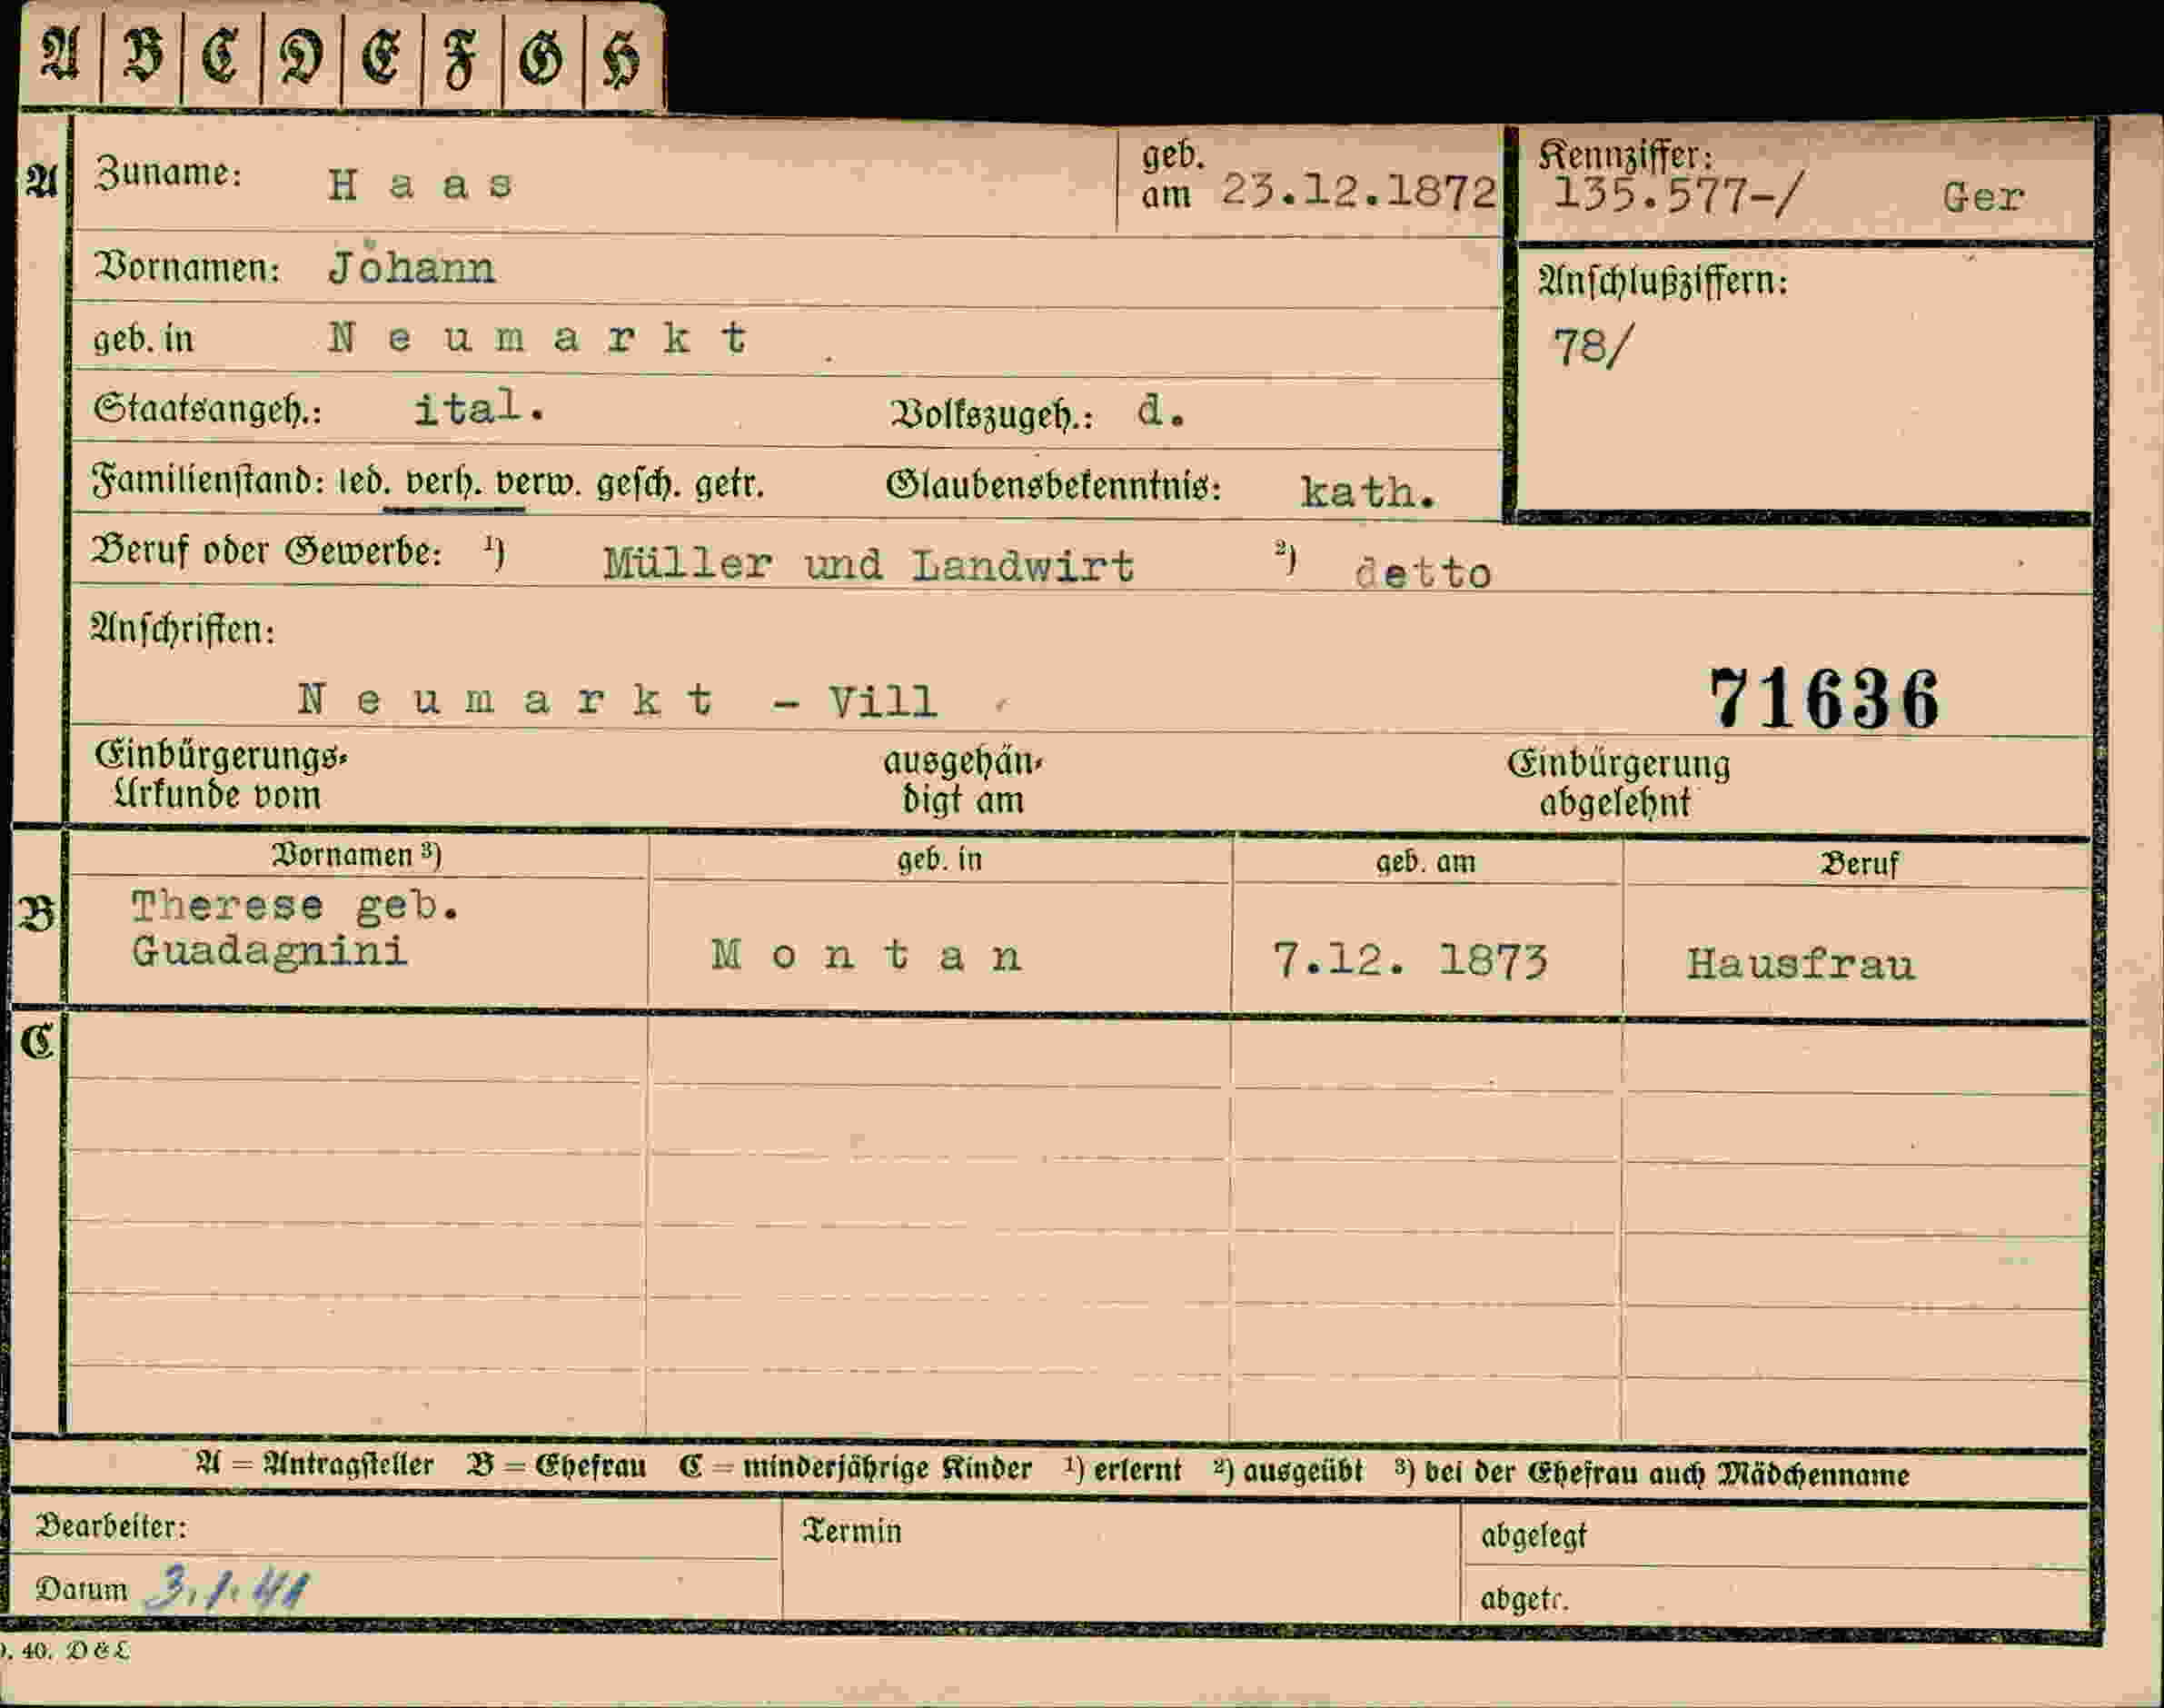 A B C D E F G H
A Zuname: Haas geb. am 23.12.1872 Kennziffer: 135.577-/ Ger
Vornamen: Johann Anschlußziffern:
geb. in Neumarkt 78/
Staatsangeh.: ital. Volkszugeh.: d.
Familienstand: led. verh. verw. gesch. getr. Glaubensbekenntnis: kath.
Beruf oder Gewerbe: ¹) Müller und Landwirt ²) detto
Anschriften:
Neumarkt - Vill 71636
Einbürgerungs- ausgehän- Einbürgerung
Urkunde vom digt am abgelehnt
Vornamen ³) geb. in geb. am Beruf
B Therese geb.
Guadagnini Montan 7.12. 1873 Hausfrau
C
A = Antragsteller B = Ehefrau C = minderjährige Kinder ¹) erlernt ²) ausgeübt ³) bei der Ehefrau auch Mädchenname
Bearbeiter: Termin abgelegt
Datum 3.1.41 abgetr.
. 40. D & L